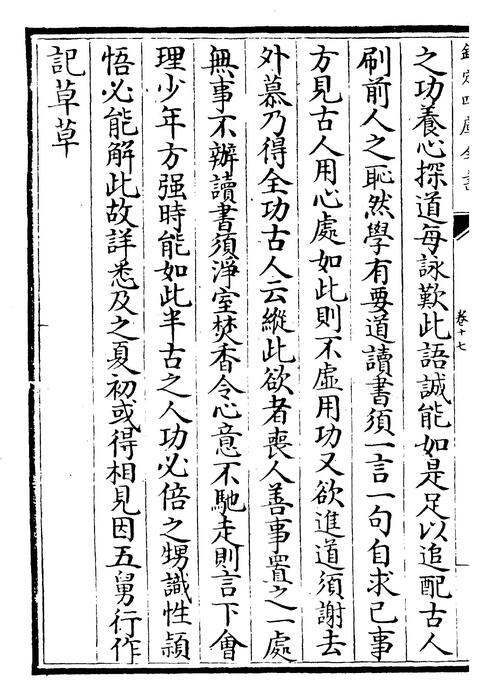 欽定四庫全書
卷十七
之功養心探道每詠歎此語誠能如是足以追配古人
刷前人之恥然學有要道讀書須一言一句自求己事
方見古人用心處如此則不虛用功又欲進道須謝去
外慕乃得全功古人云縱此欲者喪人善事置之一處
無事不辦讀書須淨室焚香令心意不馳走則言下會
理少年方强時能如此半古之人功必倍之甥識性頴
悟必能解此故詳悉及之夏初或得相見因五舅行作
記草草